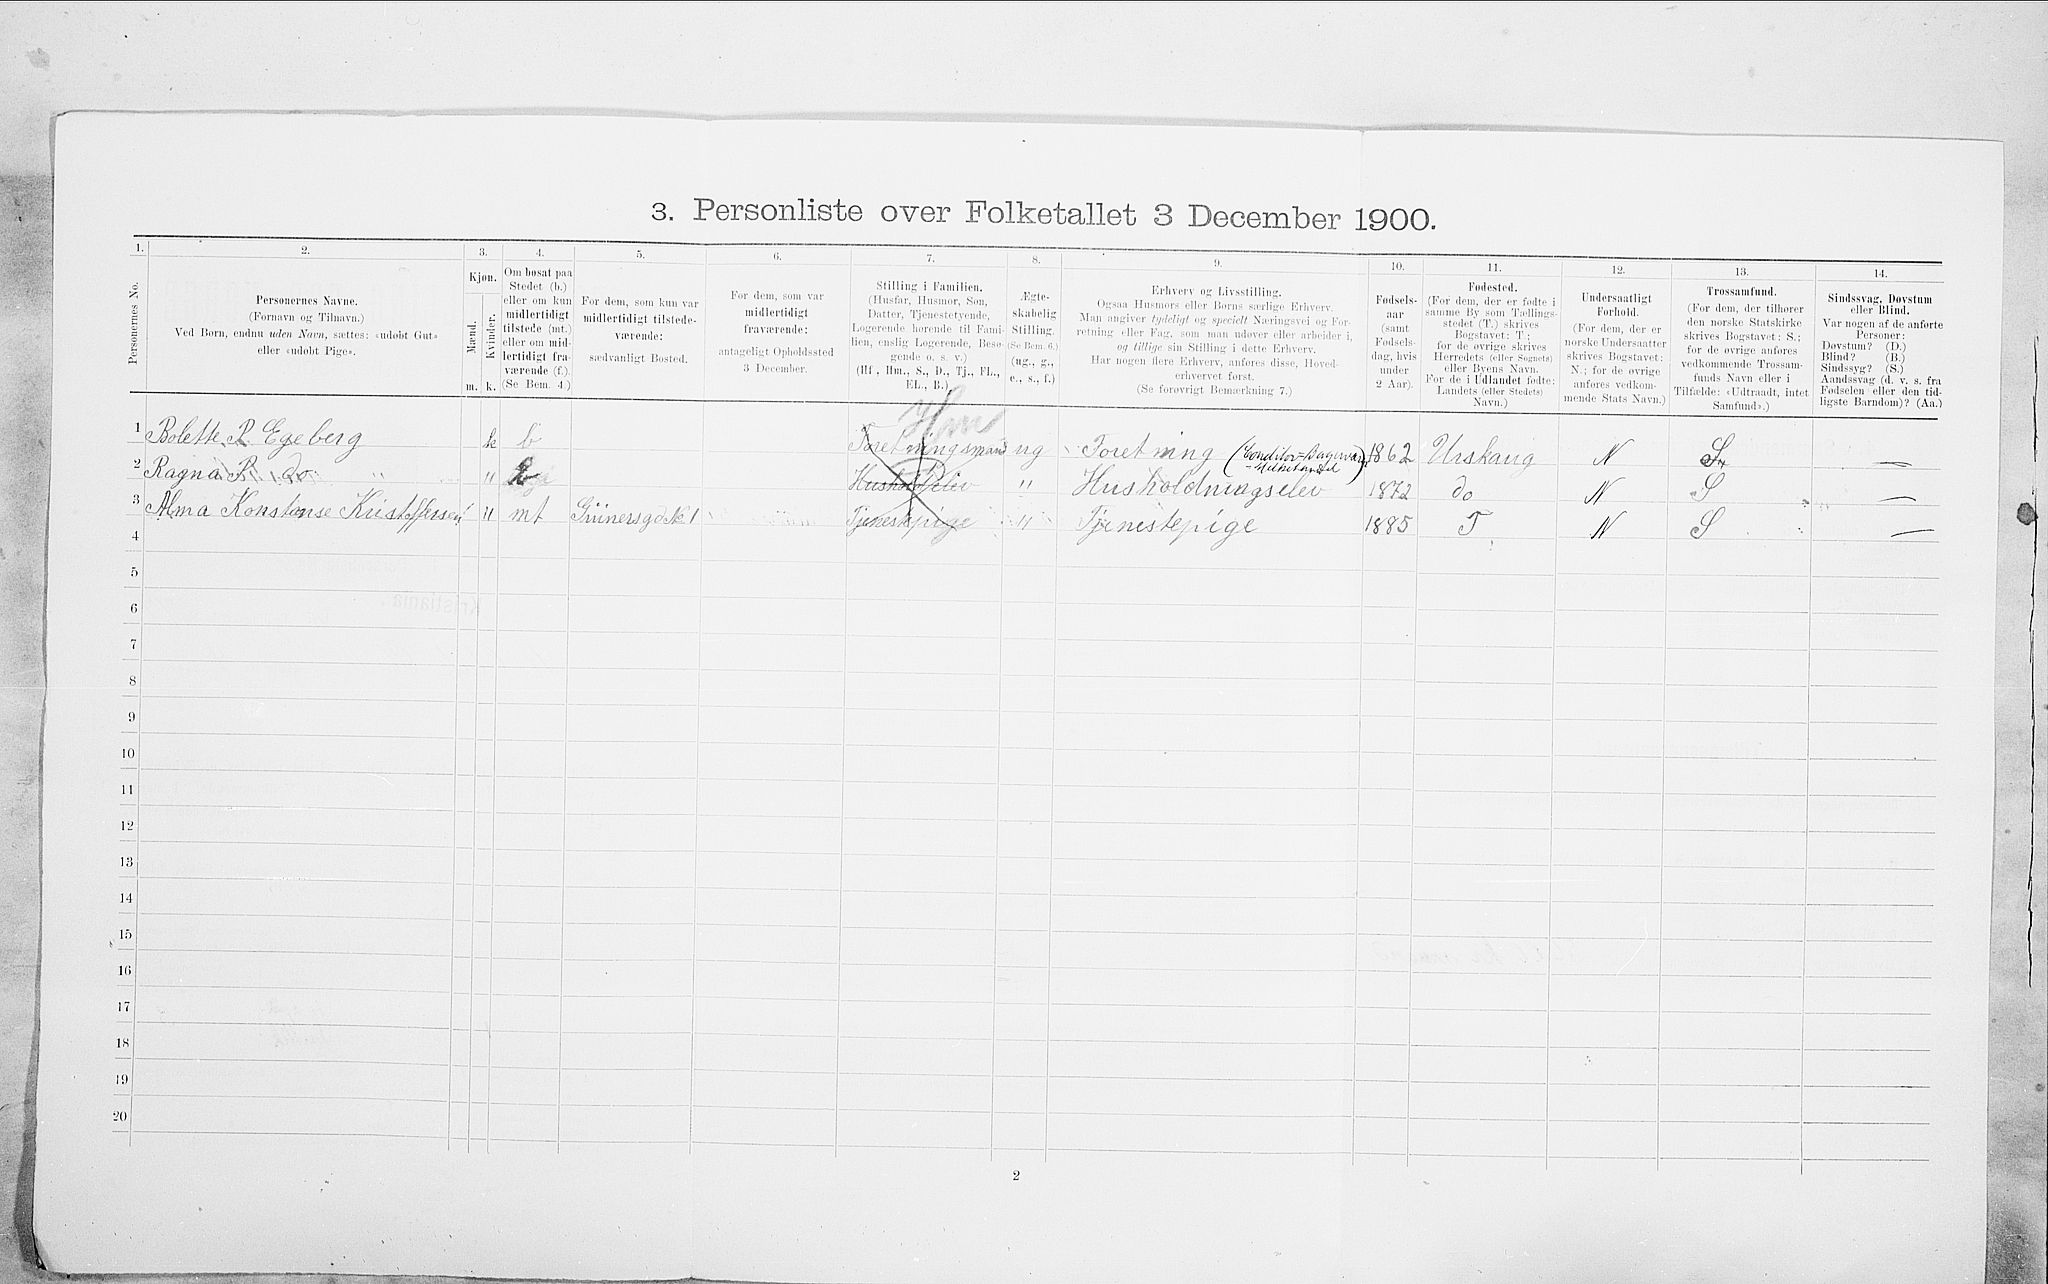 3. Personliste over Folketallet 3 December 1900.
1. 2. 3. 4. 5. 6. 7. 8. 9. 10. 11. 12. 13. 14.
Personernes No.
Personernes Navne.
(Fornavn og Tilnavn.)
Ved Børn, endnu uden Navn, sættes: «udøbt Gut»
eller «udøbt Pige».
Kjøn.
Mænd.
Kvinder.
m. k.
Om bosat paa
Stedet (b.)
eller om kun
midlertidigt
tilstede (mt.)
eller om mid-
lertidigt fra-
værende (f.).
(Se Bem. 4.)
For dem, som kun var
midlertidigt tilstede-
værende:
sædvanligt Bosted.
For dem, som var
midlertidigt
fraværende:
antageligt Opholdssted
3 December.
Stilling i Familien.
(Husfar, Husmor, Søn,
Datter, Tjenestetyende,
Logerende hørende til Fami-
lien, enslig Logerende, Besø-
gende o. s. v.)
(Hf., Hm., S., D., Tj., FL.,
EL., B.)
Ægte-
skabelig
Stilling.
(Se Bem. 6.)
(ug., g.,
e., s., f.)
Erhverv og Livsstilling.
Ogsaa Husmors eller Børns særlige Erhverv.
Man angiver tydeligt og specielt Næringsvei og For-
retning eller Fag, som man udøver eller arbeider i,
og tillige sin Stilling i dette Erhverv.
Har nogen flere Erhverv, anføres disse, Hoved-
erhvervet først.
(Se forøvrigt Bemærkning 7.)
Fødsels-
aar
(samt
Fødsels-
dag, hvis
under
2 Aar).
Fødested.
(For dem, der er fødte i
samme By som Tællings-
stedet (T.) skrives
Bogstavet: T.;
for de øvrige skrives
Herredets (eller Sognets)
eller Byens Navn.
For de i Udlandet fødte:
Landets (eller Stedets)
Navn.)
Undersaatligt
Forhold.
(For dem, der er
norske Undersaatter
skrives Bogstavet:
N.; for de øvrige
anføres vedkom-
mende Stats Navn.)
Trossamfund.
(For dem, der tilhører
den norske Statskirke
skrives Bogstavet: S.;
for de øvrige anføres
vedkommende Trossam-
funds Navn eller i
Tilfælde: «Udtraadt, intet
Samfund».)
Sindssvag, Døvstum
eller Blind.
Var nogen af de anførte
Personer:
Døvstum? (D.)
Blind? (B.)
Sindssyg? (S.)
Aandssvag (d. v. s. fra
Fødselen eller den tid-
ligste Barndom)? (Aa.)
Hm
1 Bolette R. Egeberg k b Foretningsmand ug Foretning (Conditor-Bagervare -Melketandel) 1862 Urskaug N S —
2 Ragna R. do " b Hushold elev " Husholdningselev 1872 do N S —
3 Alma Konstanse Kristoffersen " mt Grünersgd № 1 Tjenestepige " Tjenestepige 1885 T N S —
4
5
6
7
8
9
10
11
12
13
14
15
16
17
18
19
20
2